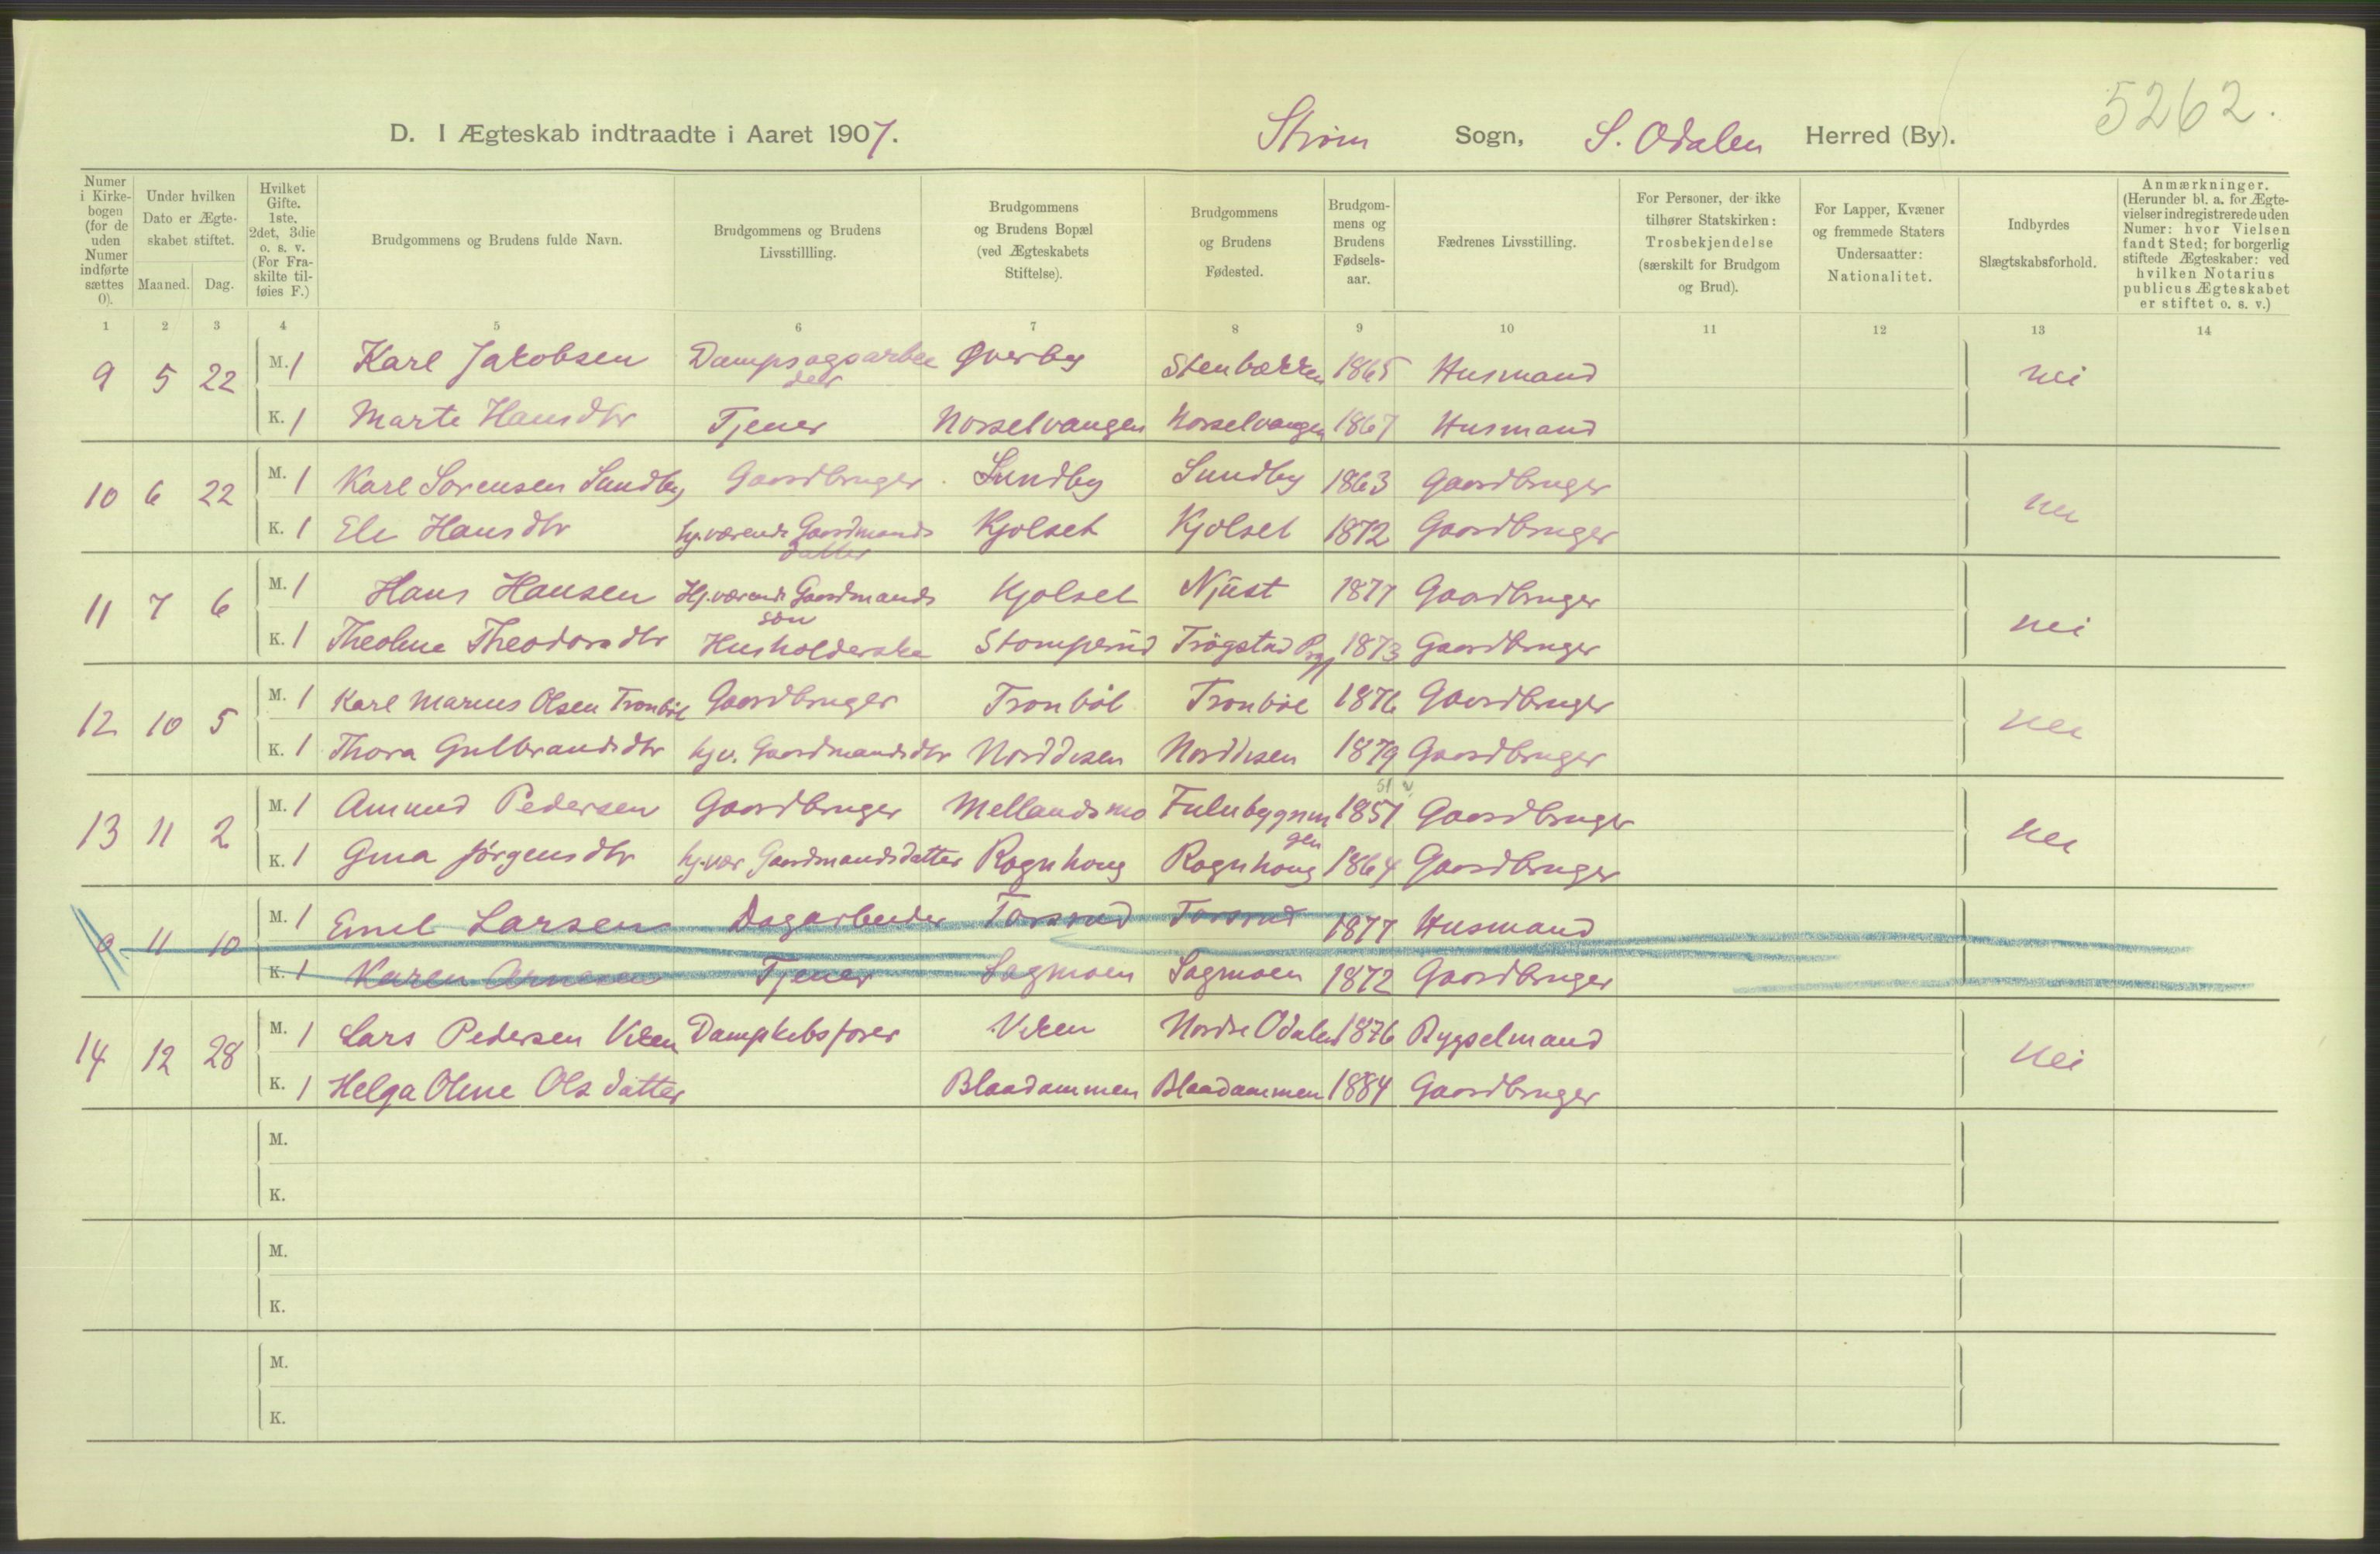 5262.
D. I Ægteskab indtraadte i Aaret 1907. Strøm Sogn, S. Odalen Herred (By).
Numer i Kirkebogen (for de uden Numer indførte sættes 0).
Under hvilken Dato er Ægteskabet stiftet.
Maaned. Dag.
Hvilket Gifte. 1ste, 2det, 3die o. s. v. (For Fraskilte tilføies F.)
Brudgommens og Brudens fulde Navn.
Brudgommens og Brudens Livsstillling.
Brudgommens og Brudens Bopæl (ved Ægteskabets Stiftelse).
Brudgommens og Brudens Fødested.
Brudgommens og Brudens Fødselsaar.
Fædrenes Livsstilling.
For Personer, der ikke tilhører Statskirken: Trosbekjendelse (særskilt for Brudgom og Brud).
For Lapper, Kvæner og fremmede Staters Undersaatter: Nationalitet.
Indbyrdes Slægtskabsforhold.
Anmærkninger. (Herunder bl. a. for Ægtevielser indregistrerede uden Numer: hvor Vielsen fandt Sted; for borgerlig stiftede Ægteskaber: ved hvilken Notarius publicus Ægteskabet er stiftet o. s. v.)
1 2 3 4 5 6 7 8 9 10 11 12 13 14
9 5 22 M. 1 Karl Jakobsen Dampsagsarbeider Øverby Stenbækken 1865 Husmand nei
K. 1 Marte Hansdtr Tjener Norselvangen Norselvangen 1867 Husmand
10 6 22 M. 1 Karl Sorensen Sundby Gaardbruger Sundby Sundby 1863 Gaardbruger nei
K. 1 Eli Hansdtr hj.værende Gaardmandsdatter Kjølset Kjølset 1872 Gaardbruger
11 7 6 M. 1 Hans Hansen Hj.værende Gaardmandssøn Kjolset Njust 1877 Gaardbruger nei
K. 1 Theoline Theodorsdtr Husholderske Stomperud Trøgstad Prgj 1873 Gaardbruger
12 10 5 M. 1 Karl Marius Olsen Tronbøl Gaardbruger Tronbøl Tronbøl 1876 Gaardbruger nei
K. 1 Thora Gulbrandsdtr hjv. Gaardmandsdtr Norddisen Norddisen 1879 Gaardbruger
51
13 11 2 M. 1 Amund Pedersen Gaardbruger Mellandsmo 1851 Gaardbruger nei
K. 1 Gina Jørgensdtr hj.vær Gaardmandsdatter Rognhoug Rognhoug 1864 Gaardbruger
0 11 10 M. 1 Emil Larsen Dagarbeider Torsrud Torsrud 1877 Husmand
K. 1 Karen Arnesen Tjener Sagmoen Sagmoen 1872 Gaardbruger
14 12 28 M. 1 Lars Pedersen Viken Dampskibsfører Viken Nordre Odalen 1876 Bygselmand nei
K. 1 Helga Oline Olsdatter Blaadammen Blaadammen 1884 Gaardbruger
M.
K.
M.
K.
M.
K.